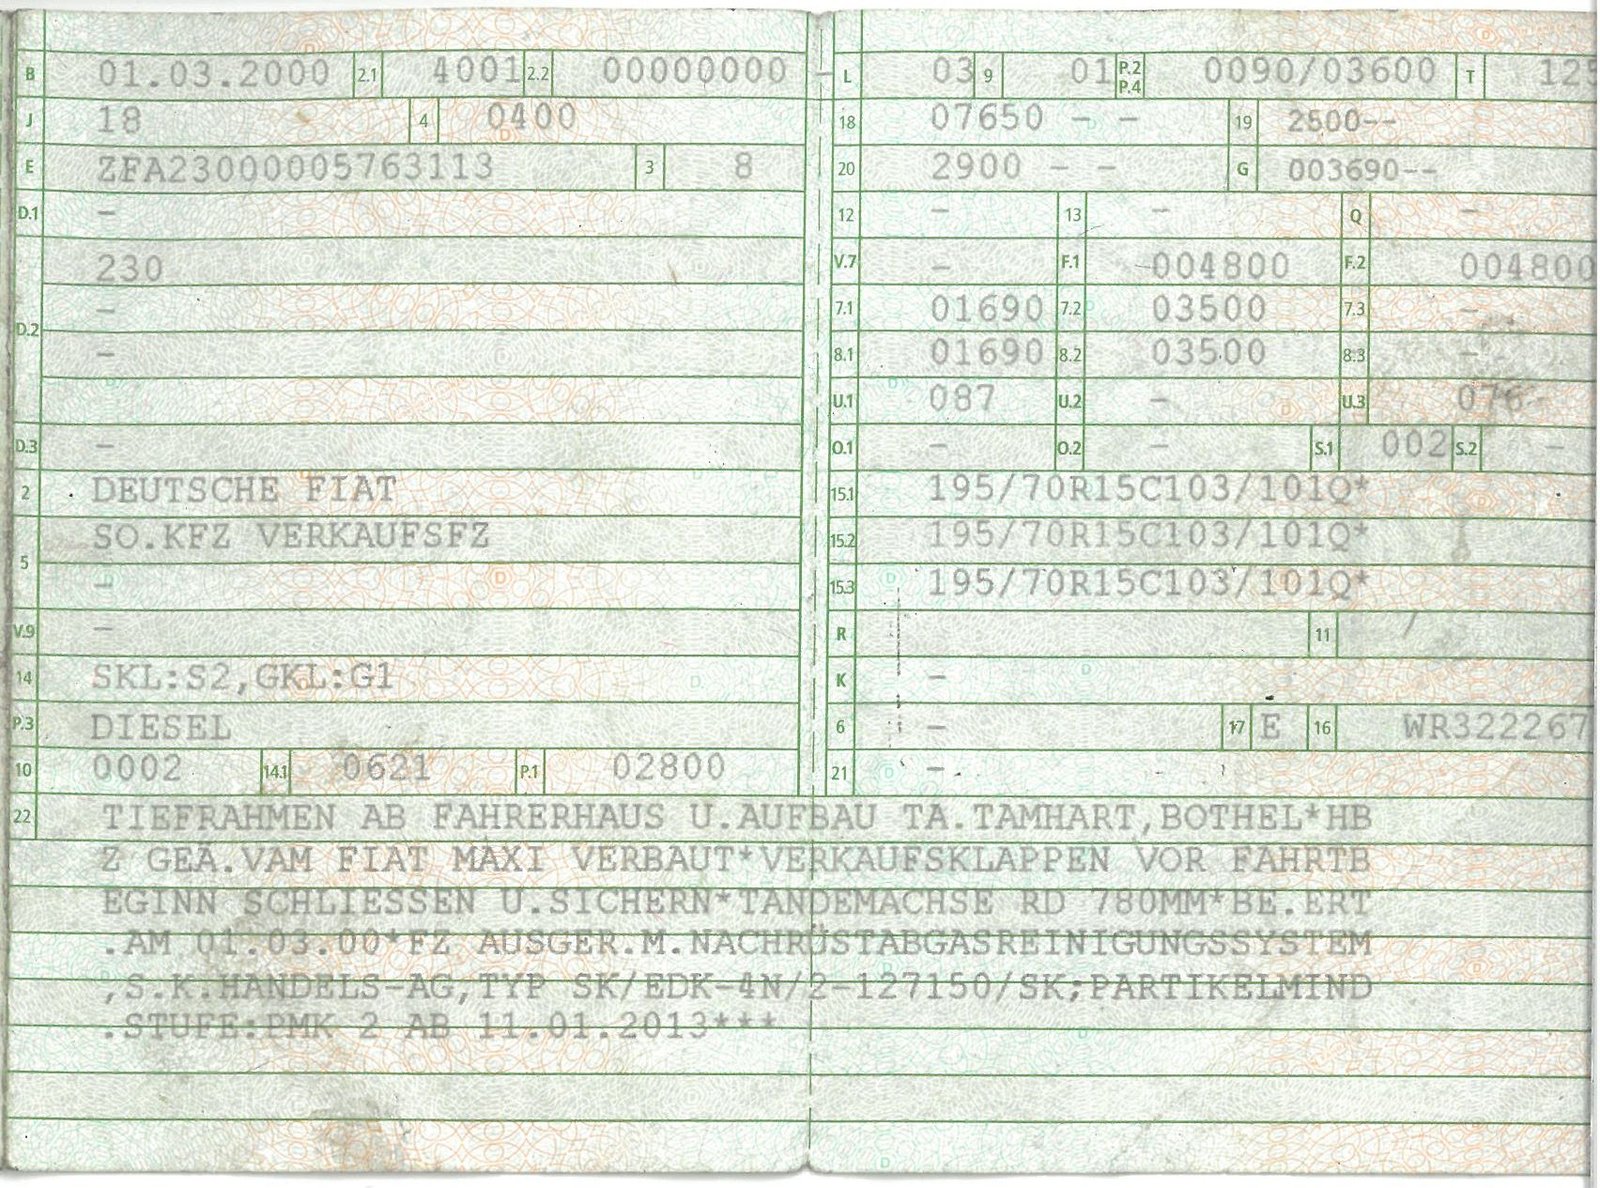 B 01.03.2000 2.1 4001 2.2 00000000 -
J 18 4 0400
E ZFA23000005763113 3 8
D.1 -
230
D.2 -
-
D.3 -
2 DEUTSCHE FIAT
SO.KFZ VERKAUFSFZ
5 -
V.9 -
14 SKL:S2,GKL:G1
P.3 DIESEL
10 0002 14.1 0621 P.1 02800
L 03 9 01 P.2 P.4 0090/03600 T 125
18 07650 - - 19 2500--
20 2900 - - G 003690--
12 - 13 - Q -
V.7 - F.1 004800 F.2 004800
7.1 01690 7.2 03500 7.3 -
8.1 01690 8.2 03500 8.3 -
U.1 087 U.2 - U.3 076-
O.1 - O.2 - S.1 002 S.2 -
15.1 195/70R15C103/101Q*
15.2 195/70R15C103/101Q*
15.3 195/70R15C103/101Q*
R 11
K -
6 - 17 E 16 WR322267
21 -
22 TIEFRAHMEN AB FAHRERHAUS U.AUFBAU TA.TAMHART,BOTHEL*HB
Z GEÄ.VAM FIAT MAXI VERBAUT*VERKAUFSKLAPPEN VOR FAHRTB
EGINN SCHLIESSEN U.SICHERN*TANDEMACHSE RD 780MM*BE.ERT
.AM 01.03.00*FZ AUSGER.M.NACHRÜSTABGASREINIGUNGSSYSTEM
,S.K.HANDELS-AG,TYP SK/EDK-4N/2-127150/SK;PARTIKELMIND
.STUFE:PMK 2 AB 11.01.2013***